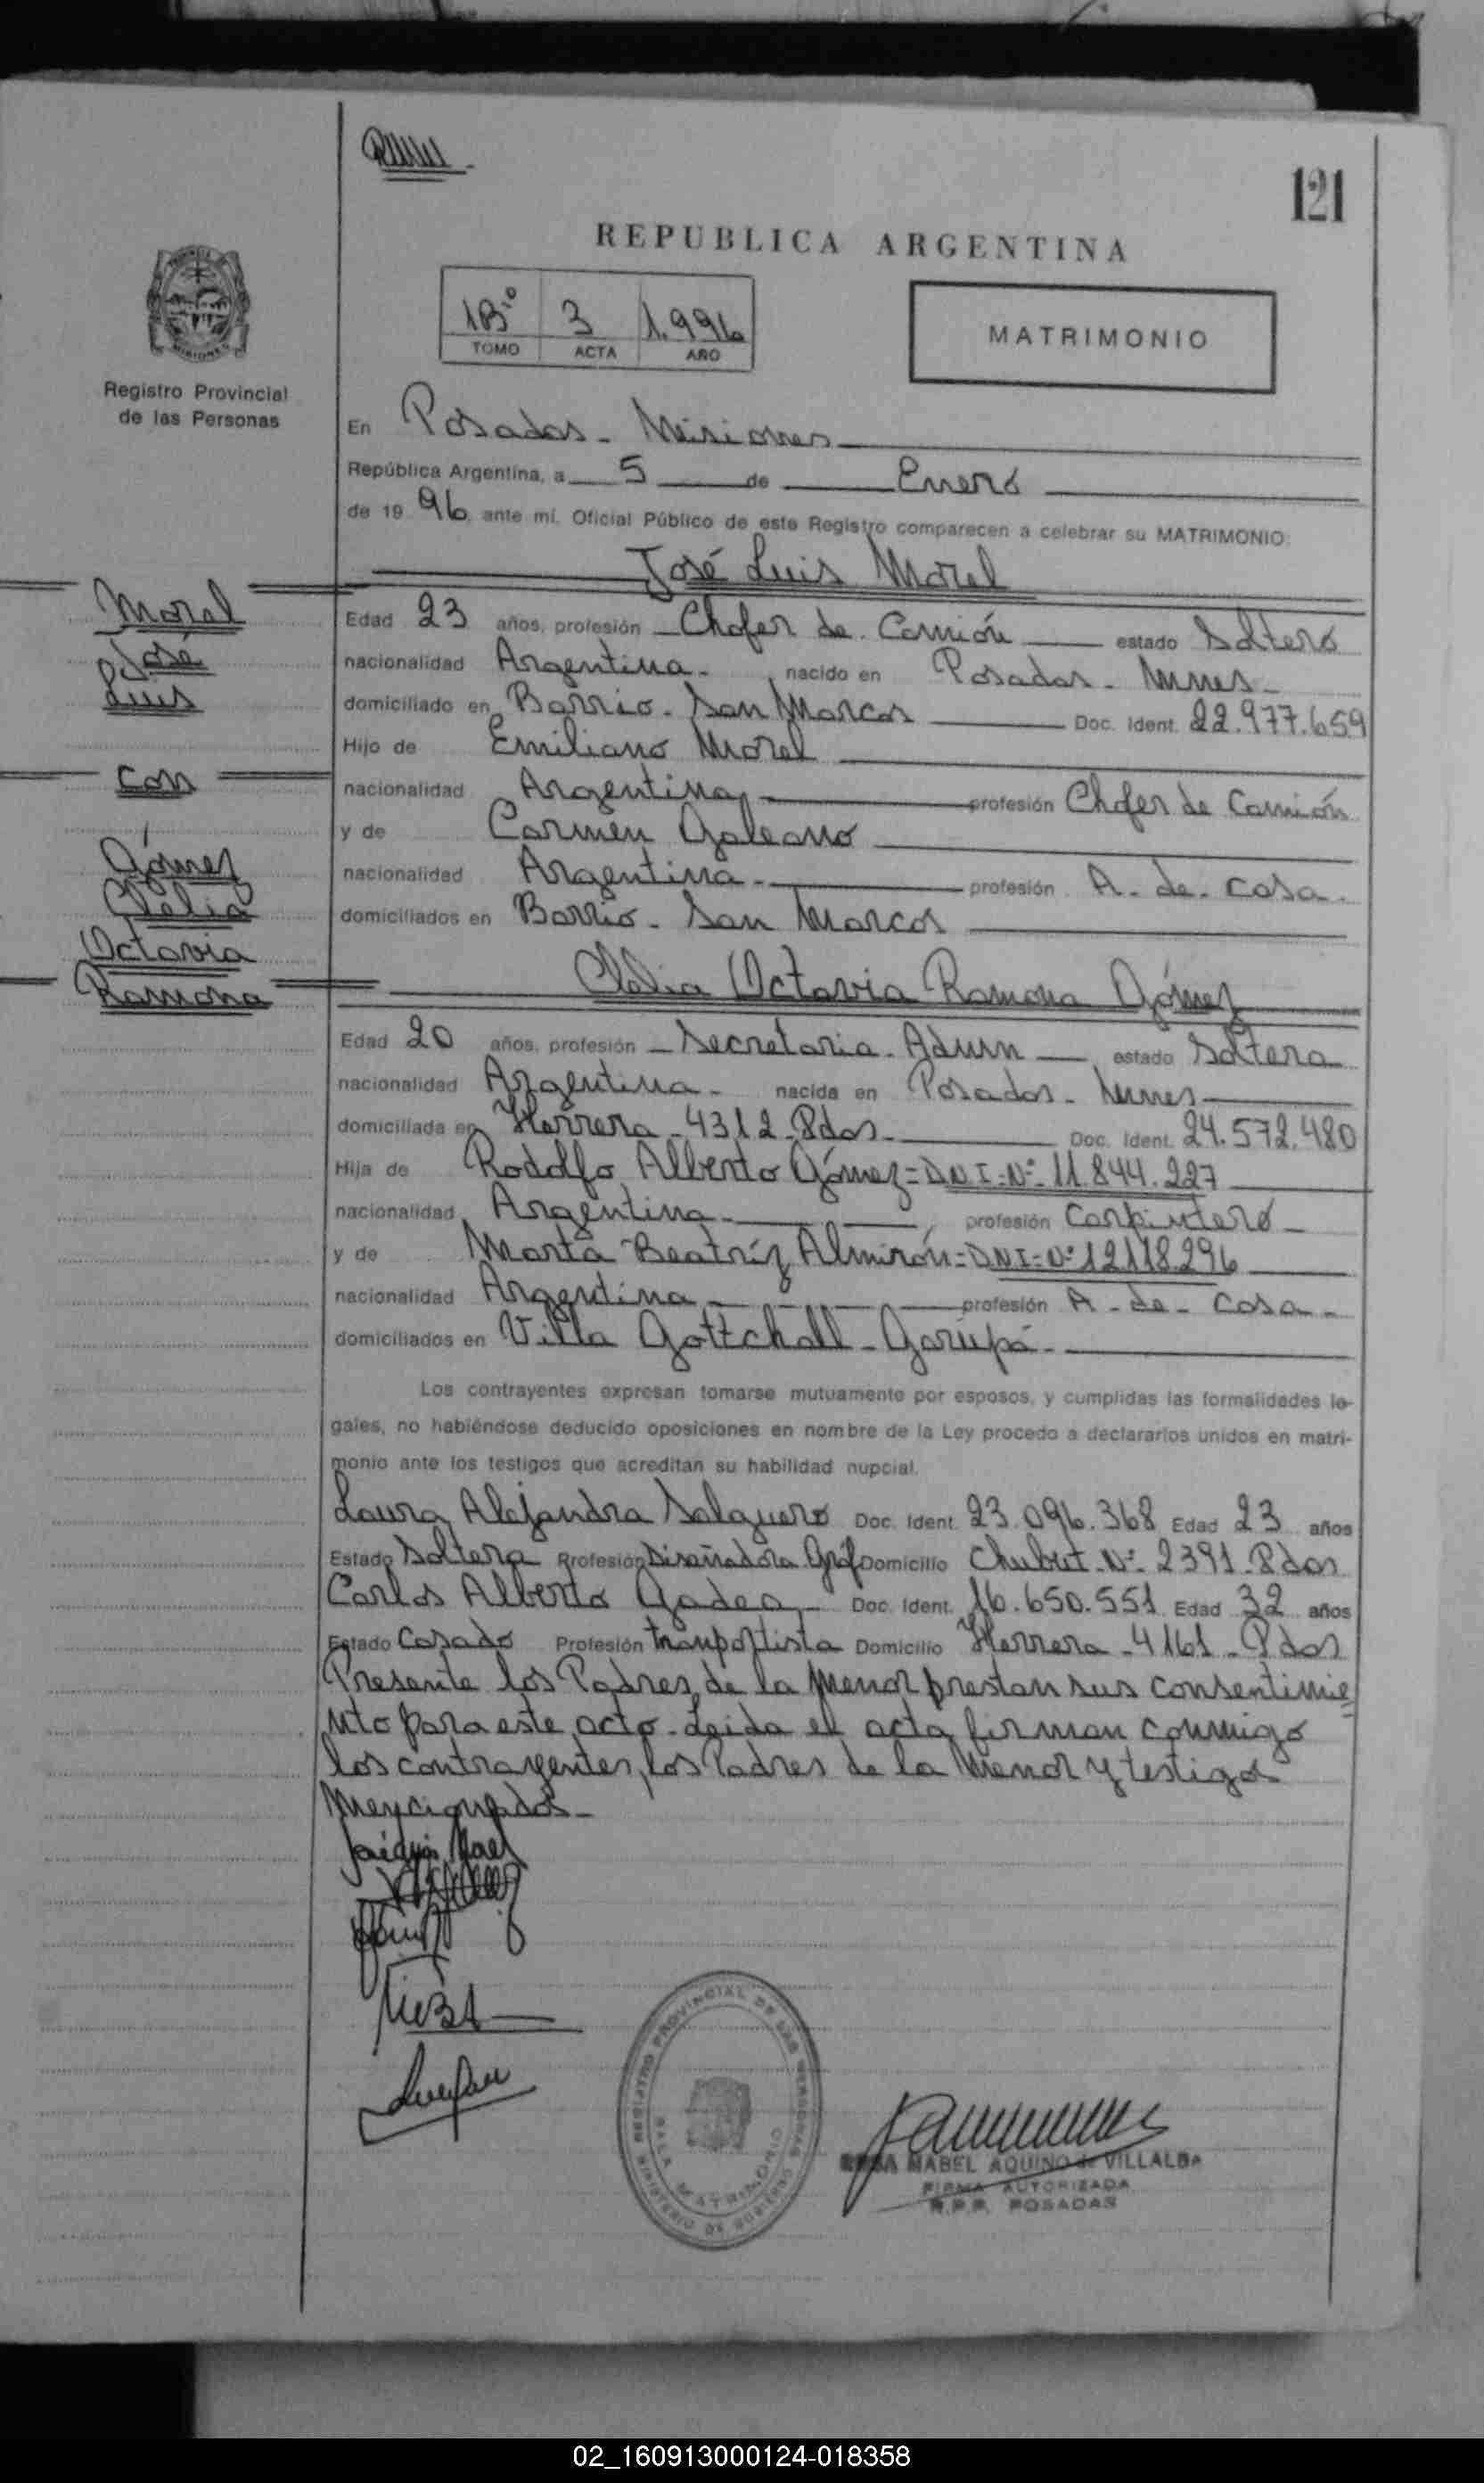 121
REPUBLICA ARGENTINA
1Bis 3 1.996
TOMO ACTA AÑO
MATRIMONIO
MISIONES
Registro Provincial
de las Personas
En Posadas - Misiones
República Argentina, a 5 de Enero
de 19 96 ante mí, Oficial Público de este Registro comparecen a celebrar su MATRIMONIO:
José Luis Morel
Morel
José
Luis
Con
Gómez
Clelia
Octavia
Ramona
Edad 23 años, profesión Chofer de Camión estado Soltero
nacionalidad Argentina - nacido en Posadas - Mnes -
domiciliado en Barrio - San Marcos Doc. Ident. 22.977.659
Hijo de Emiliano Morel
nacionalidad Argentina profesión Chofer de Camión
y de Carmen Galeano
nacionalidad Argentina - profesión A - de - casa -
domiciliados en Barrio - San Marcos
Clelia Octavia Ramona Gómez
Edad 20 años, profesión Secretaria - Admn estado Soltera
nacionalidad Argentina - nacida en Posadas - Mnes
domiciliada en Herrera - 4312 - Pdas - Doc. Ident. 24.572.480
Hija de Rodolfo Alberto Gómez = DNI = Nº 11.844.227
nacionalidad Argentina - profesión Carpintero -
y de Marta Beatríz Almirón = DNI = Nº 12118.296
nacionalidad Argentina - profesión A - de - casa -
domiciliados en Villa Gottchall - Garupá -
Los contrayentes expresan tomarse mutuamente por esposos, y cumplidas las formalidades le-
gales, no habiéndose deducido oposiciones en nombre de la Ley procedo a declararlos unidos en matri-
monio ante los testigos que acreditan su habilidad nupcial.
Laura Alejandra Salguero Doc. Ident. 23.096.368 Edad 23 años
Estado Soltera Profesión Diseñadora Gráf Domicilio Chubut - Nº 2391 - Pdas
Carlos Alberto Gadea - Doc. Ident. 16.650.551 Edad 32 años
Estado Casado Profesión tranportista Domicilio Herrera - 4161 - Pdas
Presente los Padres de la Menor prestan sus consentimie=
nto para este acto - Leida el acta firman conmigo
los contrayentes, los Padres de la Menor y testigos
Mencionados -
REGISTRO PROVINCIAL DE LAS PERSONAS
MINISTERIO DE GOBIERNO
SALA MATRIMONIO
ROSA MABEL AQUINO de VILLALBA
FIRMA AUTORIZADA
R.P.P. POSADAS
02_160913000124-018358